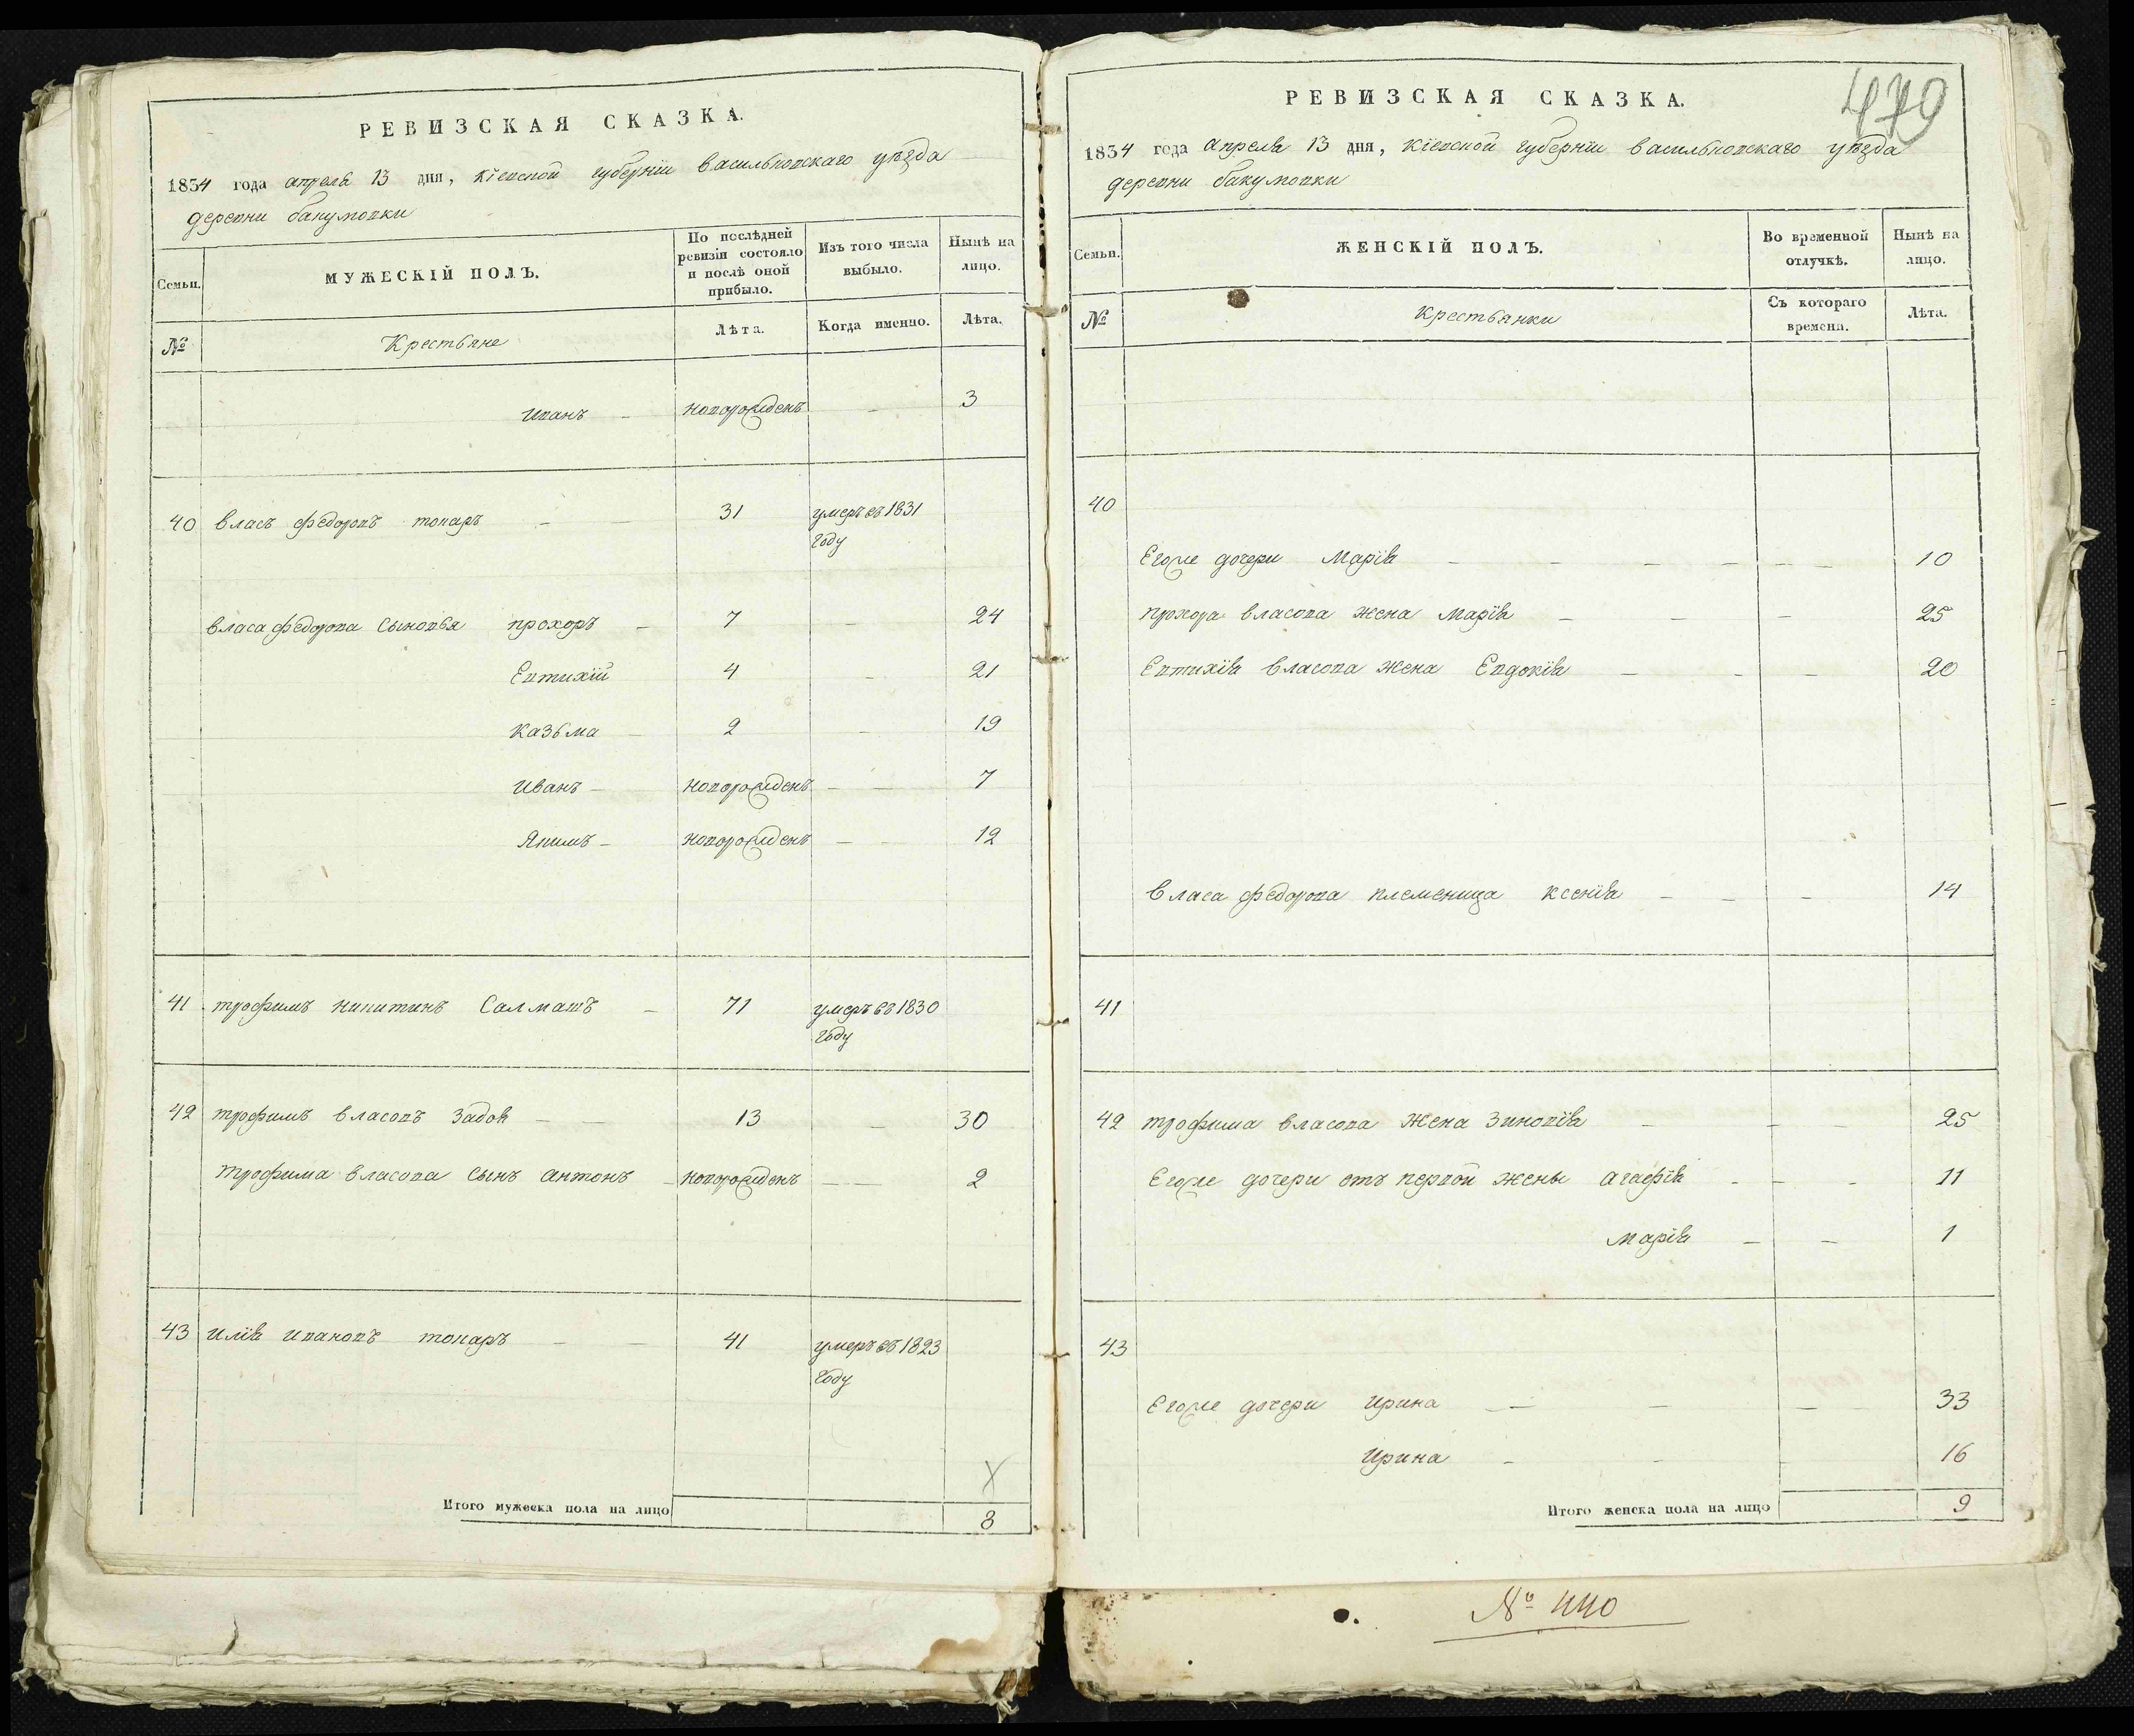 РЕВИЗСКАЯ СКАЗКА.
1834 года апреля 13 дня, Кіевской губерніи васильковскаго уѣзда
деревни бакумовки
Семьи. МУЖЕСКІЙ ПОЛЪ. По послѣдней ревизіи состояло и послѣ оной прибыло. Изъ того числа выбыло. Нынѣ на лицо.
№ Крестьяне Лѣта. Когда именно. Лѣта.
Иванъ - новорожденъ - 3
40 власъ федоровъ токаръ - 31 умеръ въ 1831
году
власа федорова сыновья прохоръ - 7 - 24
Евтихій 4 - 21
Казьма - 2 - 19
Иванъ - новорожденъ - - 7
Якимъ - новорожденъ - - 12
41 трофимъ никитинъ Салматъ - 71 умеръ въ 1830
году
42 трофимъ власовъ Задоя - - 13 - 30
трофима власова сынъ антонъ - новорожденъ - - 2
43 илія ивановъ токаръ - - 41 умеръ въ 1823
году
X
Итого мужеска пола на лицо 8
479
РЕВИЗСКАЯ СКАЗКА.
1834 года апреля 13 дня, Кіевской губерніи васильковскаго уѣзда
деревни бакумовки
Семьи. ЖЕНСКІЙ ПОЛЪ. Во временной отлучкѣ. Нынѣ на лицо.
№ Крестьянки Съ котораго времени. Лѣта.
40
Егоже дочери Марія - - - - - - 10
прохора власова жена марія - - - 25
Евтихія власова жена Евдокія - - - 20
власа федорова племеница ксенія - - - 14
41
42 трофима власова жена Зиновія - - - 25
Егоже дочери отъ первой жены агафія - - - 11
марія - - 1
43
Егоже дочери ирина - - - - 33
ирина - - - 16
Итого женска пола на лицо 9
№ 440